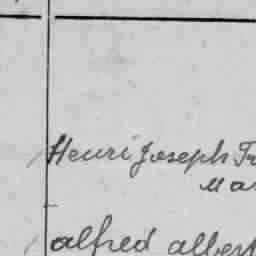 Henri Joseph Fr
Mar
alfred albert